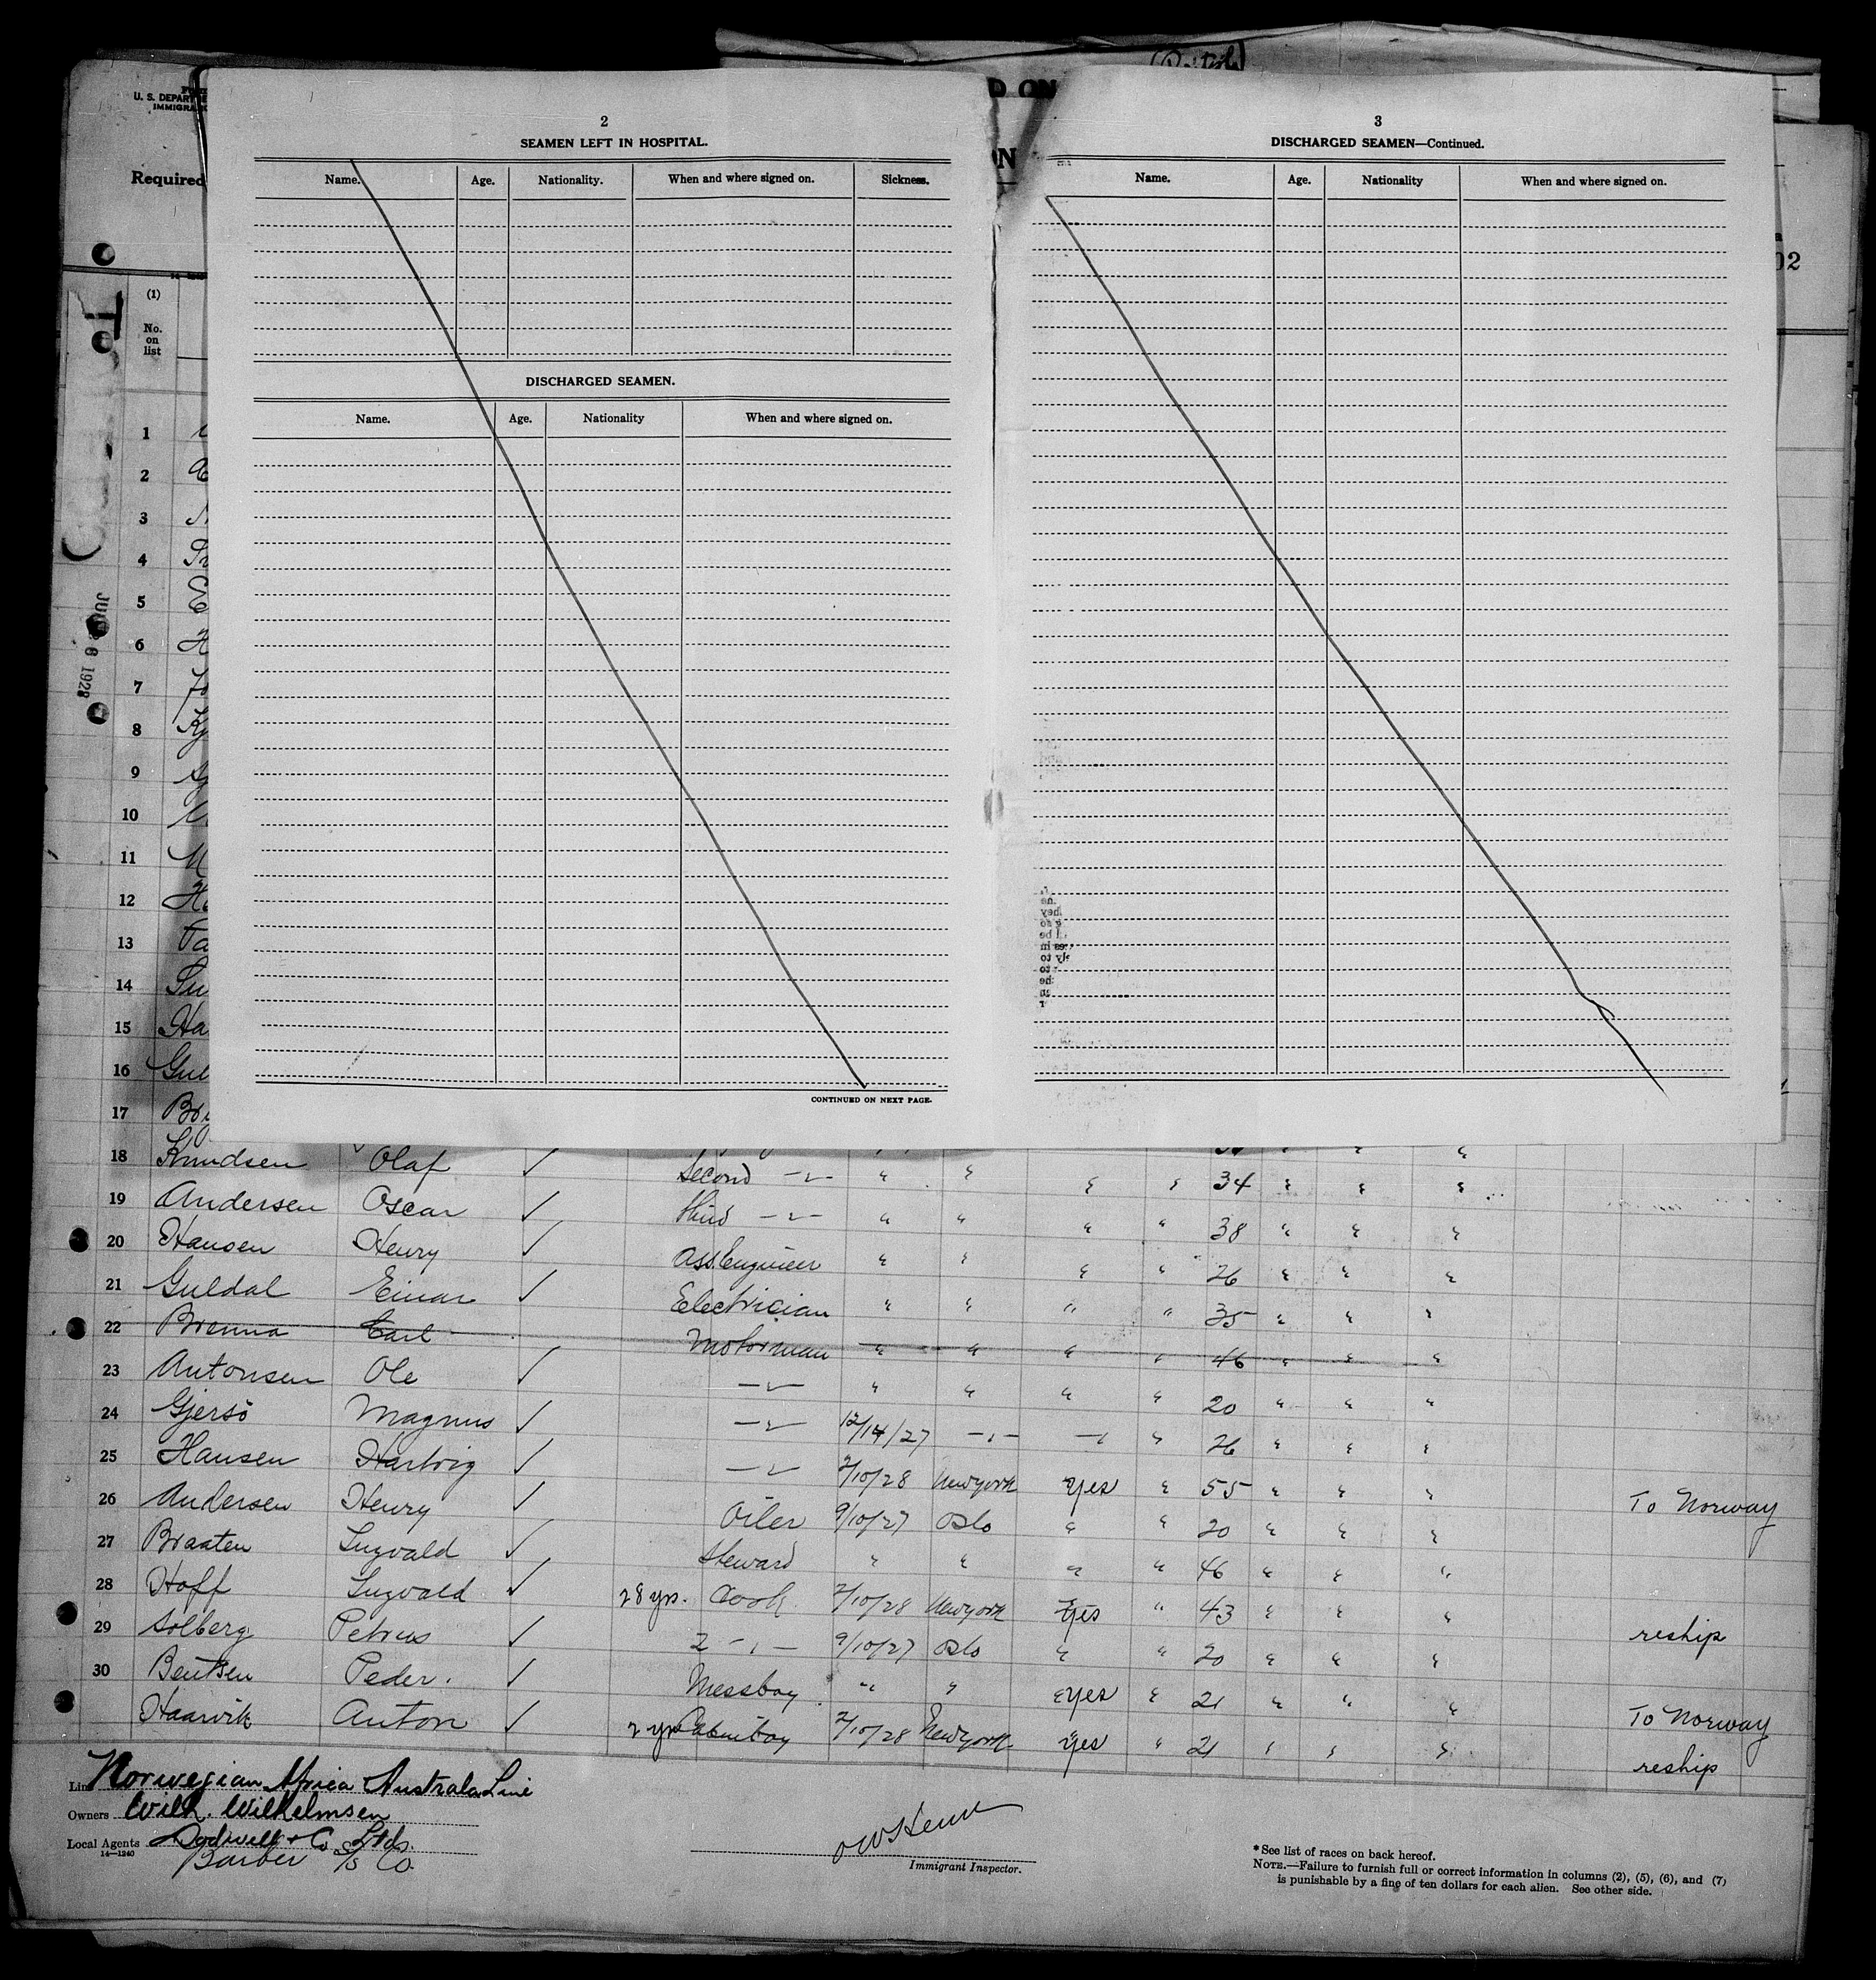 U. S. DEPART
IMMIGRA
Required
2
SEAMEN LEFT IN HOSPITAL.
Name. Age. Nationality. When and where signed on. Sickness.
DISCHARGED SEAMEN.
Name. Age. Nationality When and where signed on.
CONTINUED ON NEXT PAGE.
D ON
ON
3
DISCHARGED SEAMEN—Continued.
Name. Age. Nationality When and where signed on.
02
(1)
No.
on
list
1
2
3
4
5
6
7
8
9
10
11
12
13
14
15 Ha
16 Gul
17
18 Knudsen Olaf ✓ Second -"- " " " " 34 " " "
19 Andersen Oscar ✓ third -"- " " " " 38 " " "
20 Hansen Henry ✓ Ass. Engineer " " " " 26 " " "
21 Guldal Einar ✓ Electrician " " " " 35 " " "
22 Brenna Carl Motorman " " " " 46 " " "
23 Antonsen Ole ✓ -"- " " " " 20 " " "
24 Gjersö Magnus ✓ -"- 12/14/27 -"- -" " 26 " " "
25 Hansen Hartvig ✓ -"- 2/10/28 New york Yes " 55 " " " To Norway
26 Andersen Henry ✓ Oiler 9/10/27 Oslo " " 20 " " "
27 Braaten Ingvald ✓ Steward " " " " 46 " " "
28 Hoff Ingvald ✓ 28 yrs. Cook 2/10/28 New york Yes " 43 " " " reship
29 Solberg Petrus ✓ 2 -"- 9/10/27 Oslo " " 20 " " "
30 Bentsen Peder. ✓ Messboy " " Yes " 21 " " " To Norway
Haarvik Anton ✓ 2 yrs Cabinboy 2/10/28 New york Yes " 21 " " " reship
Line Norwegian Africa Australa Line
Owners Wilh. Wilhelmsen
Local Agents Dodwell & Co Ltds
14—1240
Barber S/S Co.
Immigrant Inspector.
* See list of races on back hereof.
NOTE.—Failure to furnish full or correct information in columns (2), (5), (6), and (7)
is punishable by a fine of ten dollars for each alien. See other side.